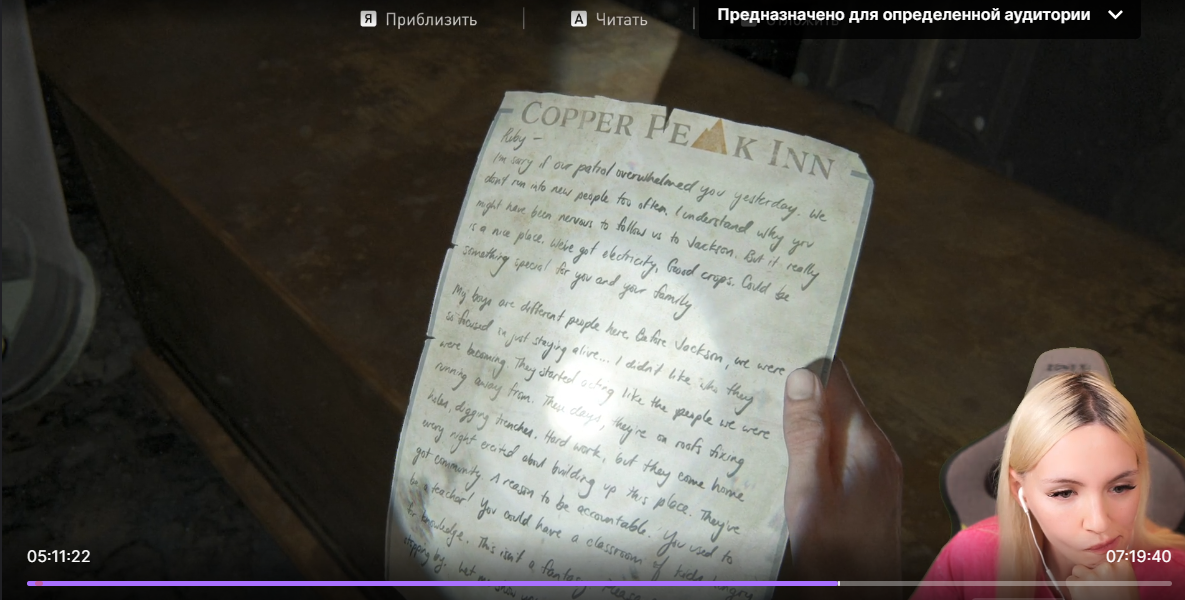 Я Приблизить
А Читать
Предназначено для определенной аудитории
COPPER PEAK INN
Ruby –
I'm sorry if our patrol overwhelmed you yesterday. We
don't run into new people too often. I understand why you
might have been nervous to follow us to Jackson. But it really
is a nice place. We've got electricity. Good crops. Could be
something special for you and your family.
My boys are different people here. Before Jackson, we were
so focused in just staying alive... I didn't like who they
were becoming. They started acting like the people we were
running away from. These days, they're on roofs fixing
holes, digging trenches. Hard work, but they come home
every night excited about building up this place. They've
got community. A reason to be accountable. You used to
be a teacher! You could have a classroom of kids hungry
for knowledge. This isn't a fantasy. Please
stopping by. Let
05:11:22
07:19:40